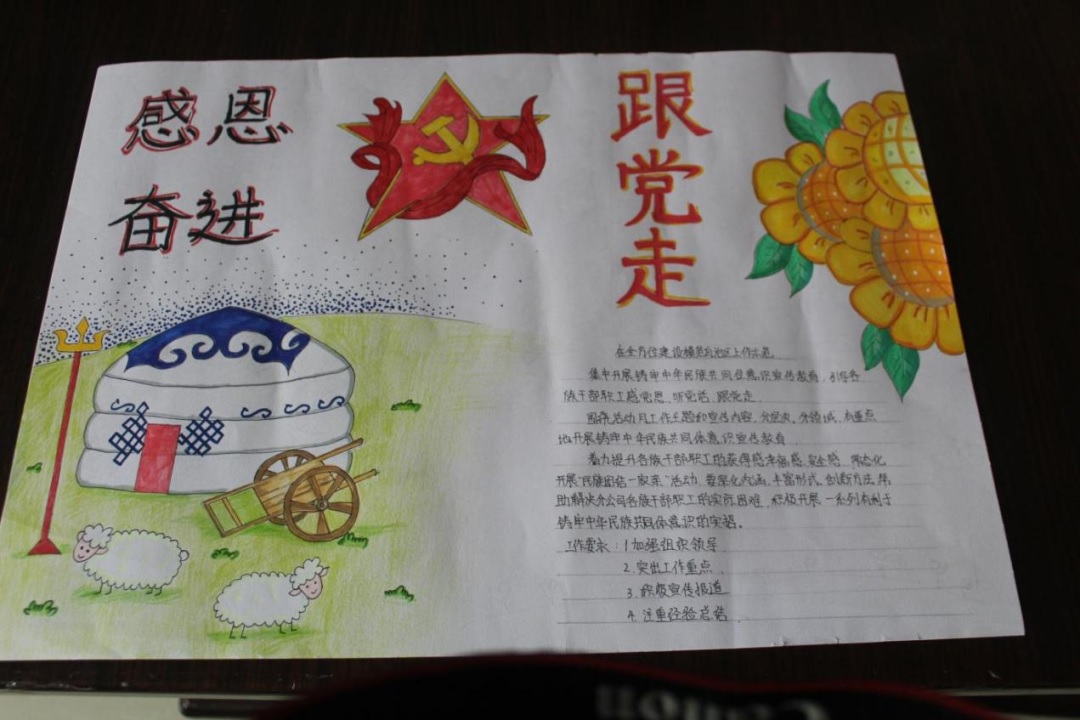 感恩
奋进
跟
党
走
在全方位建设模范自治区上作示范
集中开展铸牢中华民族共同体意识宣传教育，引导各
族干部职工感党恩、听党话、跟党走。
围绕活动月工作主题和宣传内容，分层次、分领域、有重点
地开展铸牢中华民族共同体意识宣传教育
着力提升各族干部职工的获得感幸福感、安全感，常态化
开展“民族团结一家亲”活动，要深化内涵、丰富形式、创新方法，帮
助解决分公司各族干部职工的实际困难，积极开展一系列有利于
铸牢中华民族共同体意识的实践。
工作要求：1.加强组织领导
2.突出工作重点
3.积极宣传报道
4.注重经验总结
Canon